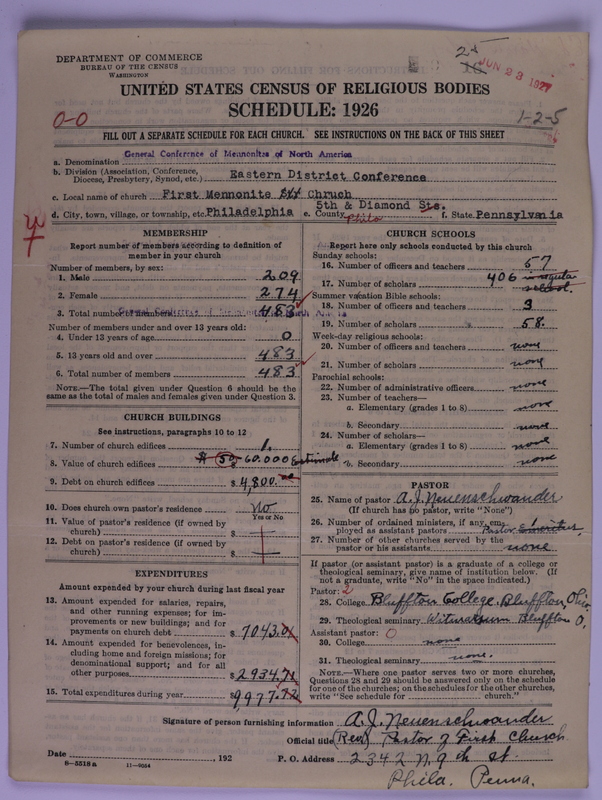 DEPARTMENT OF COMMERCE
BUREAU OF THE CENSUS
WASHINGTON
25
JUN 23 1927
UNITED STATES CENSUS OF RELIGIOUS BODIES
SCHEDULE: 1926
0-0
1-2-5
FILL OUT A SEPARATE SCHEDULE FOR EACH CHURCH. SEE INSTRUCTIONS ON THE BACK OF THIS SHEET
a. Denomination General Conference of Mennonites of North America
b. Division (Association, Conference, Diocese, Presbytery, Synod, etc.) Eastern District Conference
c. Local name of church First Mennonite Chruch
5th & Diamond Sts.
d. City, town, village, or township, etc. Philadelphia e. County Phila f. State Pennsylvania
MEMBERSHIP
Report number of members according to definition of
member in your church
Number of members, by sex:
1. Male 209
2. Female 274
3. Total number of members 483
General Conference of Mennonites of North America
Number of members under and over 13 years old:
4. Under 13 years of age 0
5. 13 years old and over 483
6. Total number of members 483
NOTE.—The total given under Question 6 should be the
same as the total of males and females given under Question 3.
CHURCH BUILDINGS
See instructions, paragraphs 10 to 12
7. Number of church edifices 1.
8. Value of church edifices $ 60.000 Estimate
9. Debt on church edifices $ 4,800.
10. Does church own pastor's residence No
Yes or No
11. Value of pastor's residence (if owned by
church) $
12. Debt on pastor's residence (if owned by
church) $
EXPENDITURES
Amount expended by your church during last fiscal year
13. Amount expended for salaries, repairs,
and other running expenses; for im-
provements or new buildings; and for
payments on church debt $ 7043.01
14. Amount expended for benevolences, in-
cluding home and foreign missions; for
denominational support; and for all
other purposes $ 2934.71
15. Total expenditures during year $ 9977.72
CHURCH SCHOOLS
Report here only schools conducted by this church
Sunday schools:
16. Number of officers and teachers 57
17. Number of scholars 406 in regular school.
Summer vacation Bible schools:
18. Number of officers and teachers 3
19. Number of scholars 58.
Week-day religious schools:
20. Number of officers and teachers none
21. Number of scholars none
Parochial schools:
22. Number of administrative officers none
23. Number of teachers—
a. Elementary (grades 1 to 8) none
b. Secondary none
24. Number of scholars—
a. Elementary (grades 1 to 8) none
b. Secondary none
PASTOR
25. Name of pastor A. J. Neuenschwander
(If church has no pastor, write "None")
26. Number of ordained ministers, if any, em-
ployed as assistant pastors Pastor Emeritus,
27. Number of other churches served by the
pastor or his assistants none
If pastor (or assistant pastor) is a graduate of a college or
theological seminary, give name of institution below. (If
not a graduate, write "No" in the space indicated.)
Pastor: 2
28. College Bluffton College, Bluffton, Ohio
29. Theological seminary Bluffton O.
Assistant pastor: 0
30. College none
31. Theological seminary none.
NOTE.—Where one pastor serves two or more churches,
Questions 28 and 29 should be answered only on the schedule
for one of the churches; on the schedules for the other churches,
write "See schedule for church."
Signature of person furnishing information A. J. Neuenschwander
Official title (Rev) Pastor of First Church
Date , 192 P. O. Address 2342 N. 9th st.
8-5518a 11-9554
Phila. Penna.